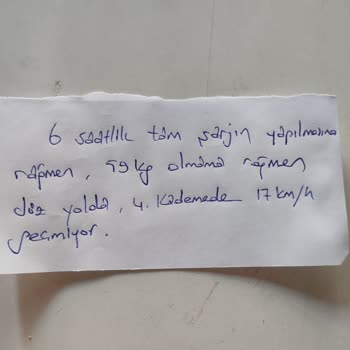 6 saatlik tam şarjın yapılmasına
rağmen, 59 kg olmama rağmen
düz yolda, 4. kademede 17 km/h
geçmiyor.